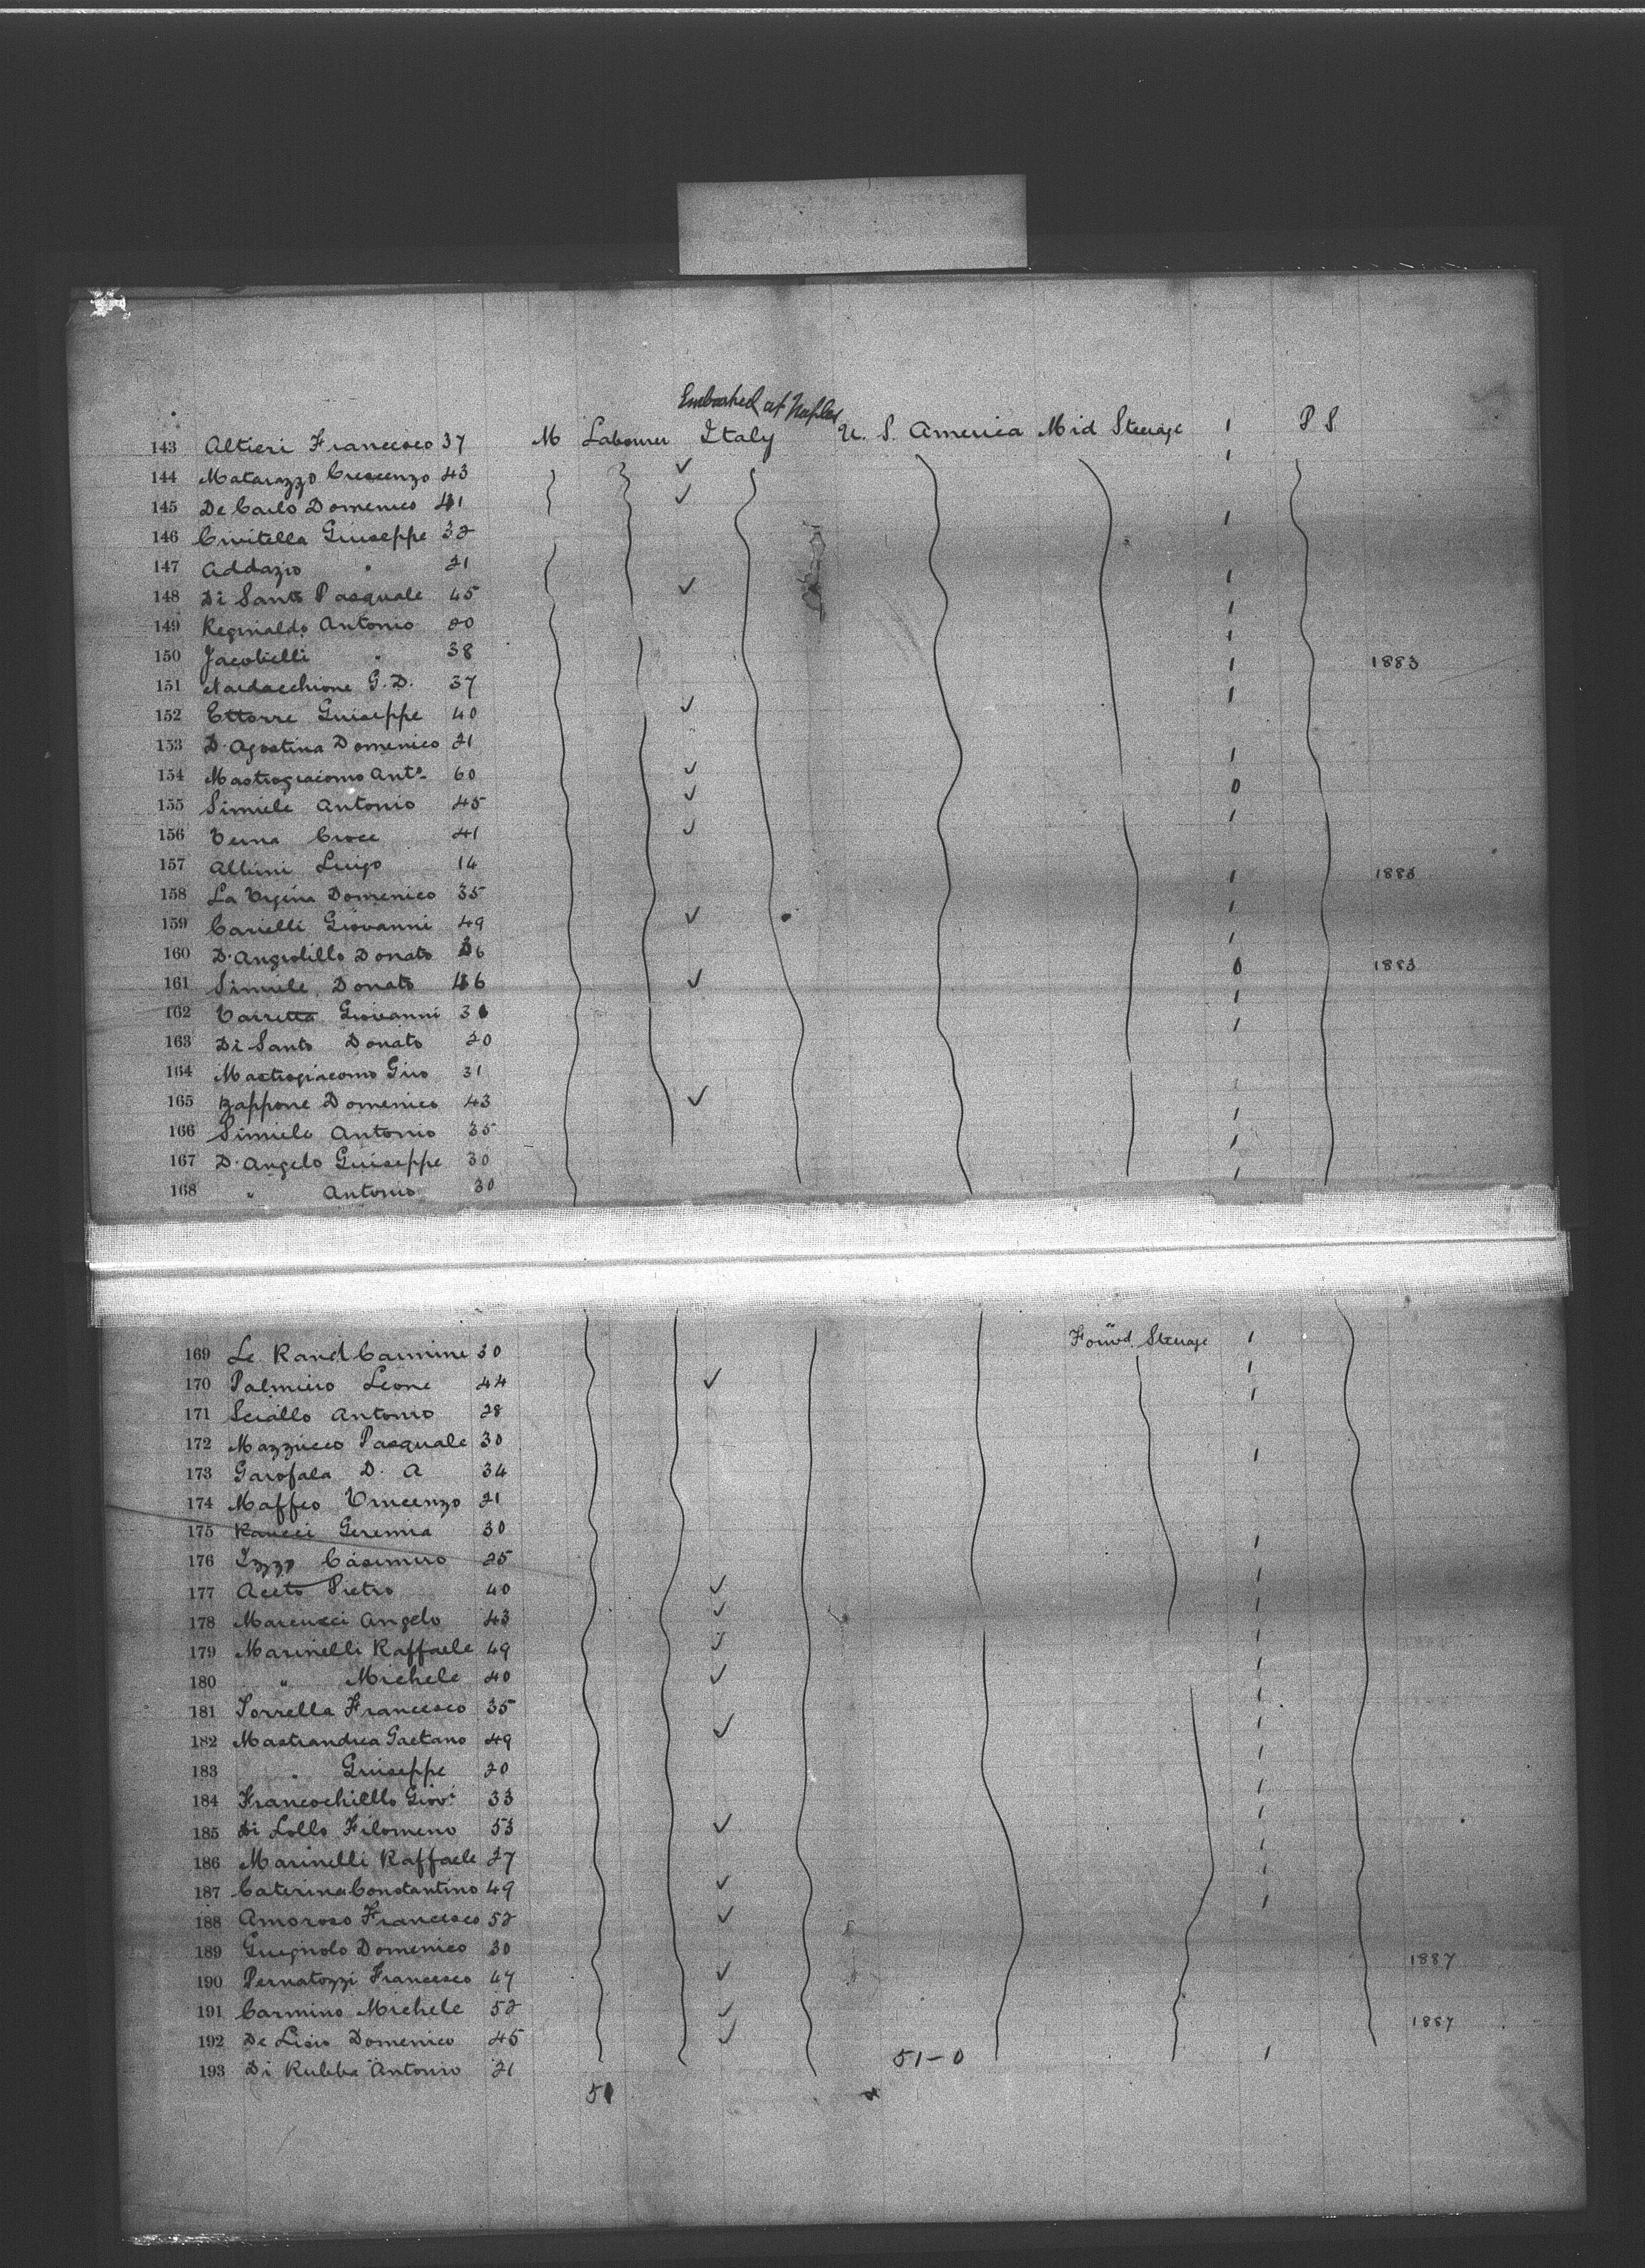 Embarked at Naples
143 Altieri Francesco 37 M Labourer Italy U. S. America Mid Steerage 1 P S
144 Matarazzo Crescenzo 43 1
145 De Carlo Domenico 41
146 Civitella Giuseppe 32 1
147 Addazio " 21
148 Di Santo Pasquale 45 1
149 Reginaldo Antonio 20 1
150 Jacobelli " 38 1 1883
151 Nardacchione G. D. 37 1
152 Ettorre Giuseppe 40 1
153 D'Agostina Domenico 21
154 Mastrogiacomo Anto. 60 1
155 Simiele Antonio 45 0
156 Verna Croce 41 1
157 Albini Luigo 14
158 La Vigina Domenico 35 1
159 Carielli Giovanni 49 1
160 D'Angiolillo Donato 36 1 1883
161 Simiele Donato 46 0
162 Varretta Giovanni 1
163 Di Santo Donato 20 1
164 Mastrogiacomo Giro 31
165 Zappone Domenico 43
166 Simiele Antonio 35 1
167 D'Angelo Guiseppe 30 1
168 " Antonio 30 1
169 Le Rand Carmine 30 Forwd Steerage 1
170 Palmiero Leone 44 1
171 Sciallo Antonio 28 1
172 Mazzucco Pasquale 30
173 Garofala D. A 34 1
174 Maffeo Vincenzo 21
175 Raucci Geremia 30
176 Izzo Casimiro 25 1
177 Aceto Pietro 40 1
178 Marcucci Angelo 43 1
179 Marinelli Raffaele 49 1
180 " Michele 40 1
181 Torrella Francesco 35 1
182 Mastrandrea Gaetano 49 1
183 " Guiseppe 20 1
184 Francochiello Giov. 33 1
185 Di Lollo Filomeno 53 1
186 Marinelli Raffaele 27 1
187 Caterina Constantino 49 1
188 Amoroso Francesco 52 1
189 Guegnolo Domenico 30
190 Pernatozzi Francesco 47 1887
191 Carmino Michele 52
192 De Lisio Domenico 45 1887
193 Di Rubba Antonio 21 51-0 1
51